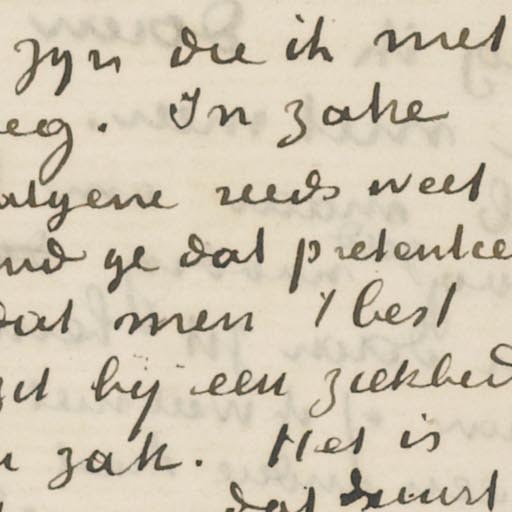 zyn die ik met
eeg. In zake
atgene reeds weet
ind ge dat pretentie
dat men 't best
zit bij een ziekbed
n zak. Het is
dat